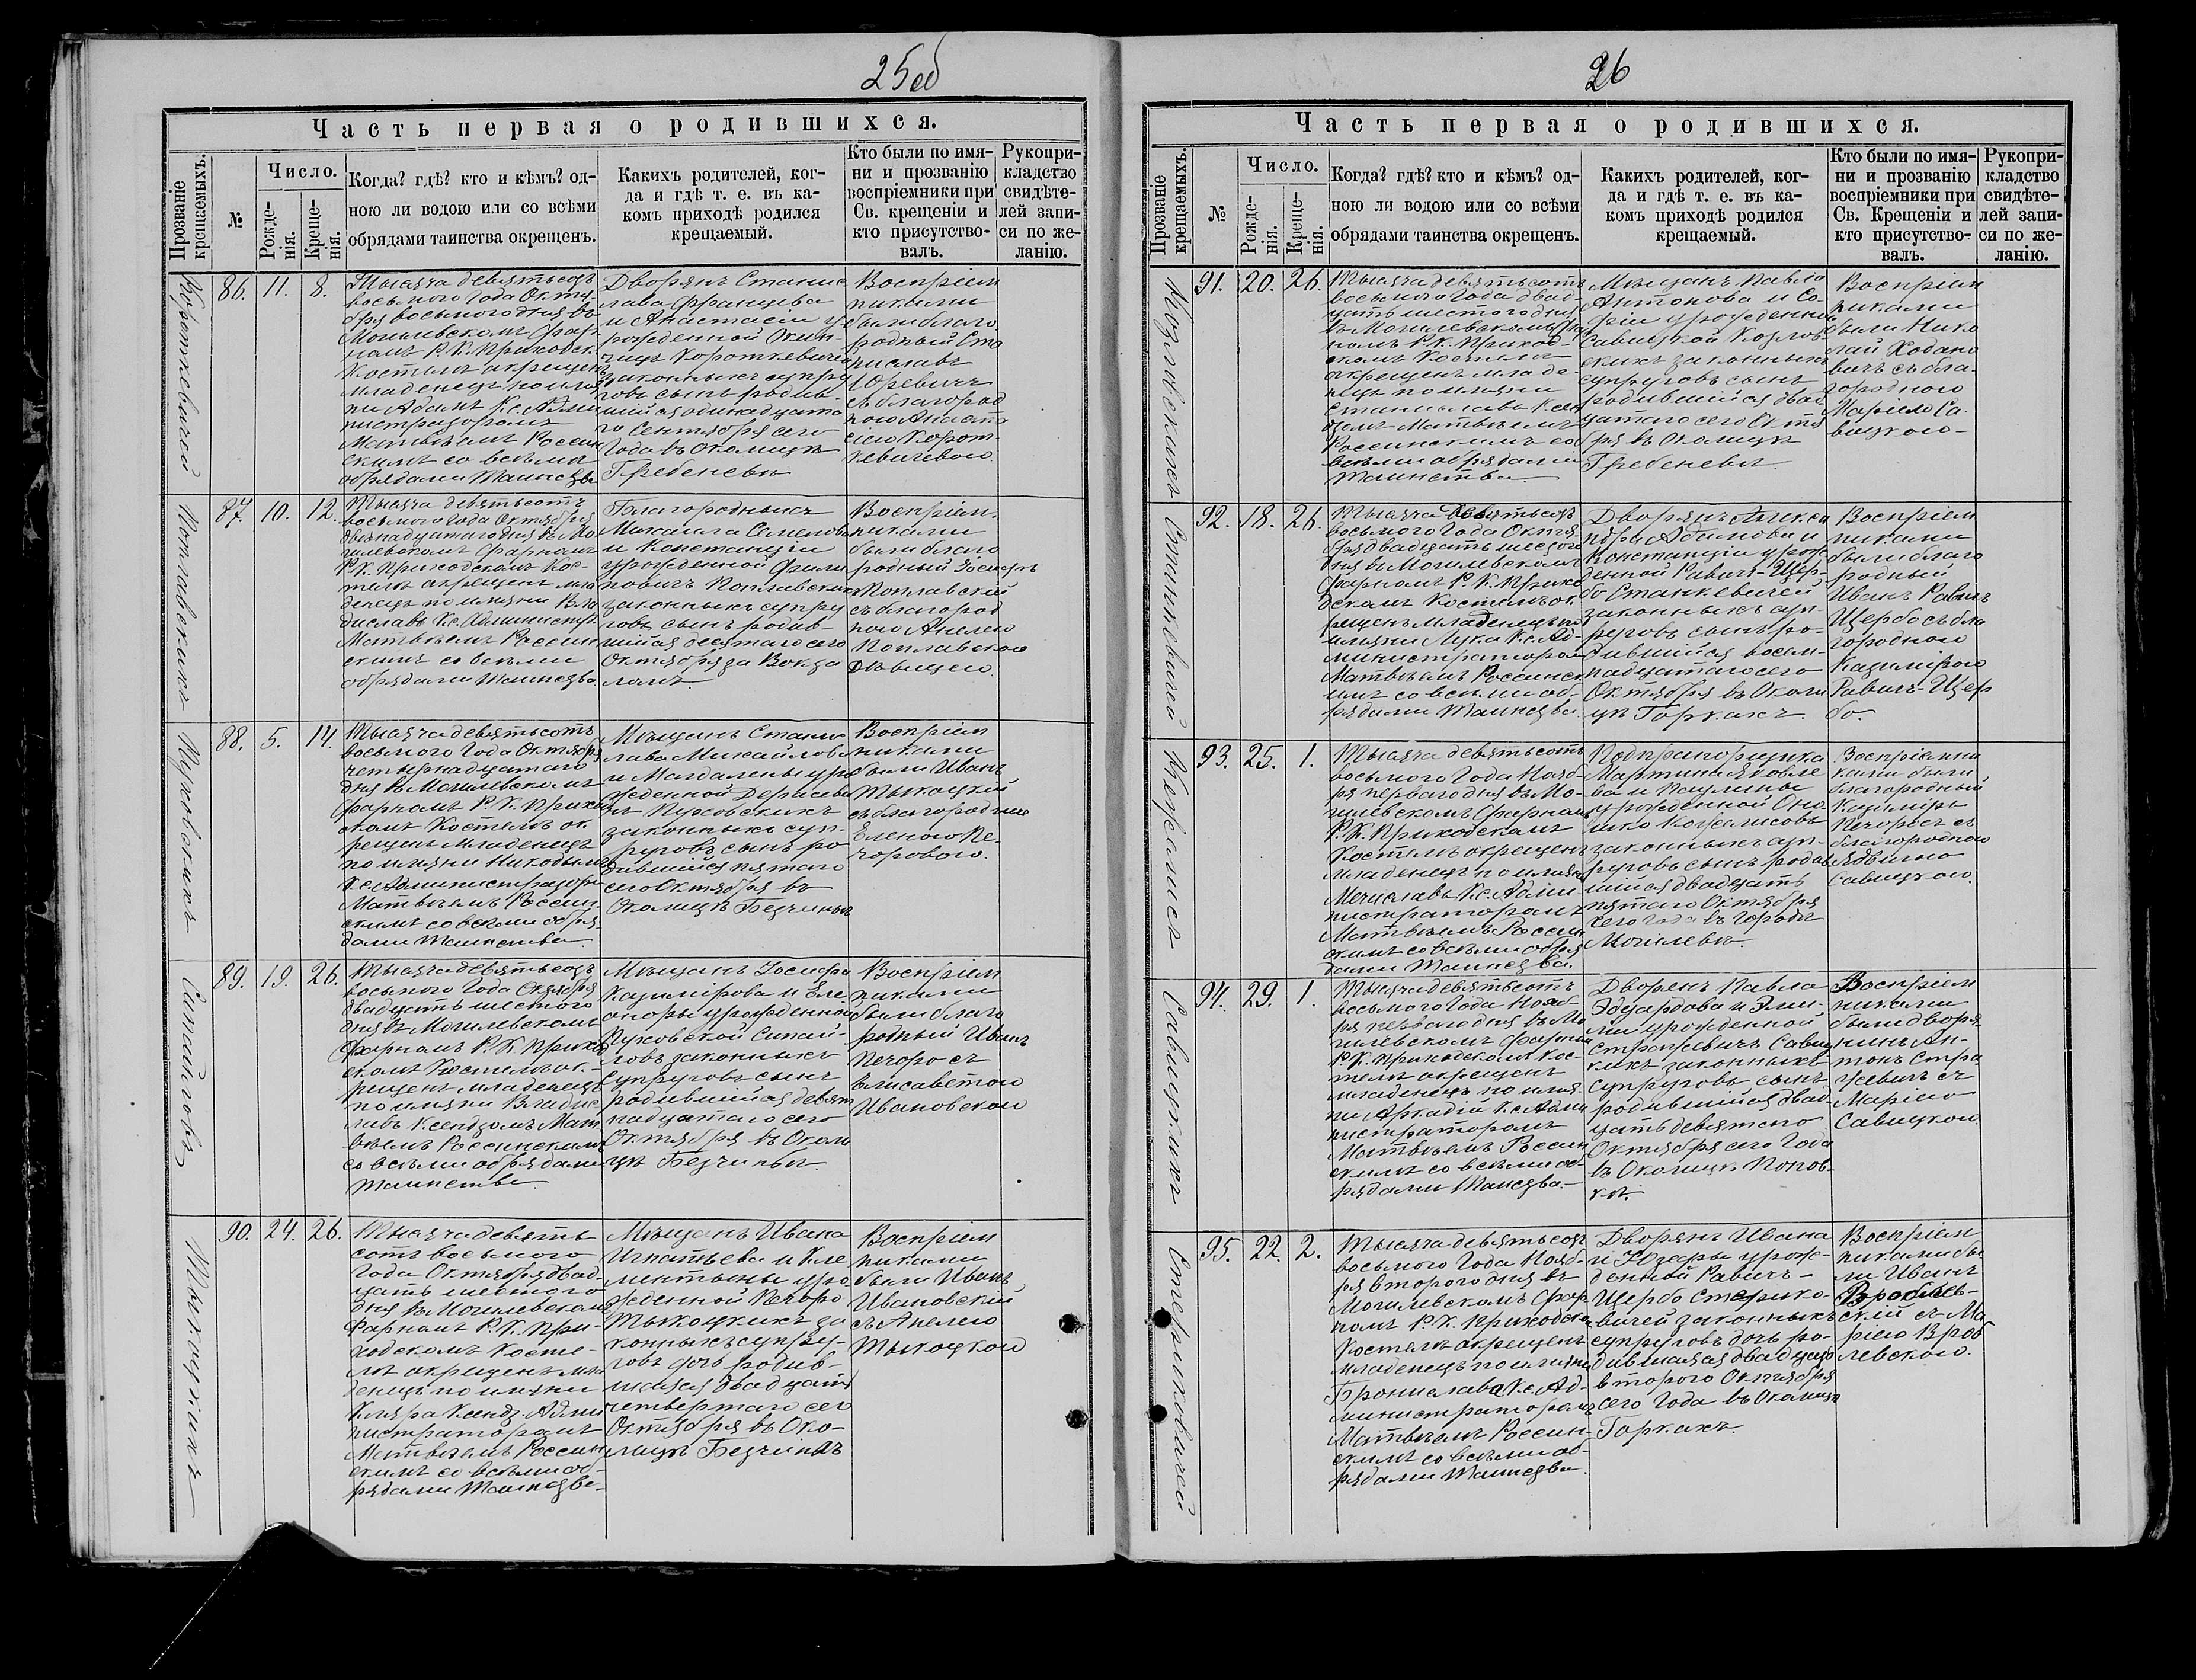 25об
Часть первая о родившихся.
Прозваніе крещаемыхъ.
№
Число.
Рожде-
нія.
Креще-
нія.
Когда? гдѣ? кто и кѣмъ? од-
ною ли водою или со всѣми
обрядами таинства окрещенъ.
Какихъ родителей, ког-
да и гдѣ т. е. въ ка-
комъ приходѣ родился
крещаемый.
Кто были по имя-
ни и прозванію
воспріемники при
Св. крещеніи и
кто присутство-
валъ.
Рукопри-
кладство
свидѣте-
лей запи-
си по же-
ланію.
Короткевичей
86. 11. 8.
Тысяча девятьсотъ
восьмого Года Октя-
бря восьмого дня въ
Могилевскомъ Фар-
номъ Р. К. Приходск.
Костелѣ окрещенъ
младенецъ по имя
ни Адамъ К.с. Адми
нистраторомъ
Матвѣемъ Россин
скимъ со всѣми
обрядами Таинства
Дворянъ Станис
лава Францева
и Анастасіи у
рожденной Окин-
чицъ Короткевичей
законныхъ супру
говъ сынъ родив-
шійся одинадцата
го Сентября сего
Года въ Околицѣ
Гребеневѣ
Воспріем
никами
были благо
родный Ста
ниславъ
Юревичъ
съ благород
ною Анаста
сіею Корот-
кевичевою.
Поплавскихъ
87. 10. 12.
Тысяча девятьсотъ
восьмого Года Октября
двѣнадцатаго дня въ Мо
гилевскомъ Фарномъ
Р.К. Приходскомъ Кос-
телѣ окрещенъ мла
денецъ по имяни Вла
диславъ К.с. Администр.
Матвѣемъ Россин
скимъ со всѣми
обрядами Таинства
Благородныхъ
Михаила Семенова
и Констанціи
урожденной Фили
повичъ Поплавскихъ
законныхъ супру
говъ сынъ родив-
шійся десятаго сего
Октября за Вокза
ломъ.
Воспріем.
никами
были благо
родный Іосифъ
Поплавскій
съ благород
ною Анелею
Поплавскою
дѣвицею.
Пуховскихъ
88. 5. 14.
Тысяча девятьсотъ
восьмого Года Октября
четырнадцатаго
дня въ Могилевскомъ
Фарномъ Р. К. Прихо
скомъ Костелѣ ок
рещенъ младенецъ
по имяни Никодимъ
К.с. Администраторо
Матвѣемъ Россин
скимъ со всѣми обря
дами Таинства.
Мѣщанъ Станис
лава Михайлова
и Магдалены уро
жденной
Пуховскихъ
законныхъ суп-
руговъ сынъ ро
дившійся пятаго
сего Октября въ
Околицѣ Безчинье
Воспріем
никами
были Иванъ
Тыкоцкій
съ благородною
Еленою Пе-
чоровою.
Сипайловъ
89. 19. 26.
Тысяча девятьсотъ
восьмого Года Октября
двадцать шестого
дня въ Могилевскомъ
Фарномъ Р. К. Приход
скомъ Костелѣ ок-
рещенъ младенецъ
по имяни Владис
лавъ Ксендзомъ Мат
вѣемъ Россинскимъ
со всѣми обрядами
Таинства.
Мѣщанъ Іосифа
Казимірова и Еле
оноры урожденной
Пуховской Сипай-
ловъ законныхъ
супруговъ сынъ
родившійся девят
надцатаго сего
Октября въ Околи
цѣ Безчинье.
Воспріем
никами
были благо
родный Иванъ
Печоро съ
Елисаветою
Ивановскою
Тыкоцкихъ
90. 24. 26.
Тысяча девять
сотъ восьмого
Года Октября двад-
цать шестого
дня въ Могилевскомъ
Фарномъ Р. К. При-
ходскомъ Косте-
лѣ окрещенъ мла
денецъ по имяни
Кляра Ксендз. Адми
нистраторомъ
Матвѣемъ Россин
скимъ со всѣми об-
рядами Таинства.
Мѣщанъ Ивана
Игнатьева и Кле
ментины уро
жденной Печоро
Тыкоцкихъ за
конныхъ супру-
говъ дочь родив-
шаяся двадцать
четвертаго сего
Октября въ Око-
лицѣ Безчинье
Воспріем
никами
были Иванъ
Ивановскій
съ Анелею
Тыкоцкою
26
Часть первая о родившихся.
Прозваніе крещаемыхъ.
№
Число.
Рожде-
нія.
Креще-
нія.
Когда? гдѣ? кто и кѣмъ? од-
ною ли водою или со всѣми
обрядами таинства окрещенъ.
Какихъ родителей, ког-
да и гдѣ т. е. въ ка-
комъ приходѣ родился
крещаемый.
Кто были по имя-
ни и прозванію
воспріемники при
Св. Крещеніи и
кто присутство-
валъ.
Рукопри-
кладство
свидѣте-
лей запи-
си по же-
ланію.
Козловскихъ
91. 20. 26.
Тысяча девятьсотъ
восьмого Года двад-
цать шестого дня
въ Могилевскомъ Фар
номъ Р. К. Приход-
скомъ Костелѣ
окрещенъ младе-
нецъ по имяни
Станиславъ Ксен
дзомъ Матвѣемъ
Россинскимъ со
всѣми обрядами
Таинства.
Мѣщанъ Павла
Антонова и Со-
фіи урожденной
Савицкой Козлов-
скихъ законныхъ
супруговъ сынъ
родившійся двад
цатаго сего Октя
бря въ Околицѣ
Гребеневѣ
Воспріем
никами
были Нико
лай Ходано
вичъ съ бла-
городною
Маріею Са-
вицкою-
Станкевичей
92. 18. 26.
Тысяча девятьсотъ
восьмого Года Октя
бря двадцать шестого
дня въ Могилевскомъ
Фарномъ Р. К. Прихо
дскомъ Костелѣ ок.
рещенъ младенецъ по
имяни Лука К.с. Ад-
министраторомъ
Матвѣемъ Россинск
имъ со всѣми об-
рядами Таинства.
Дворянъ Алекса
ндра Адамова и
Констанціи урож
денной Равичъ-Щер-
бо Станкевичей
законныхъ суп-
руговъ сынъ ро-
дившійся восем-
надцатаго сего
Октября въ Околи
цѣ Горкахъ.
Воспріем
никами
были благо
родный
Иванъ Равичъ
Щербо съ бла
городною
Казимірою
Равичъ-Щер
бо.
Кожемисъ
93. 25. 1.
Тысяча девятьсотъ
восьмого Года Нояб-
ря перваго дня въ Мо-
гилевскомъ Фарномъ
Р. К. Приходскомъ
Костелѣ окрещенъ
младенецъ по имяни
Мечиславъ К.с. Адми-
нистраторомъ
Матвѣемъ Россин
скимъ со всѣми обря
дами Таинства.
Подпрапорщика
Мартина Яковле
ва и Паулины
урожденной
законныхъ суп-
руговъ сынъ родив
шійся двадцать
пятаго Октября
сего Года въ Городѣ
Могилевѣ.
Воспріемни
ками были
благородный
Казиміръ
Печоро съ
благородною
Ядвигою
Савицкою.
Савицкихъ
94. 29. 1.
Тысяча девятьсотъ
восьмого Года Нояб-
ря перваго дня въ Мо
гилевскомъ Фарном
Р. К. Приходскомъ Кос-
телѣ окрещенъ
младенецъ по имя
ни Аркадій К.с. Адми
нистраторомъ
Матвѣемъ Россин
скимъ со всѣми об-
рядами Таинства.-
Дворянъ Павла
Эдуардова и Эми-
ліи урожденной
Страусевичъ Савиц
кихъ законныхъ
супруговъ сынъ
родившійся двад-
цать девятаго
Октября сего Года
въ Околицѣ Попов-
кѣ.
Воспріем
никами
были дворя-
нинъ Ан-
тонъ Стра
усевичъ съ
Маріею
Савицкою.
Стефриковичей
95. 22. 2.
Тысяча девятьсотъ
восьмого Года Нояб-
ря второго дня въ
Могилевскомъ Фар
номъ Р. К. Приходско
Костелѣ окрещенъ
младенецъ по имяни
Брониславъ К.с. Ад-
министраторомъ
Матвѣемъ Россин-
скимъ со всѣми об-
рядами Таинства.
Дворянъ Ивана
и Юзефы урож-
денной Равичъ-
Щербо
законныхъ
супруговъ дочь ро-
дившаяся двадцать
второго Октября
сего Года въ Околицѣ
Горкахъ.
Воспріем
никами бы
ли Иванъ
Врублев-
скій съ Ма
ріею Вруб
левскою.